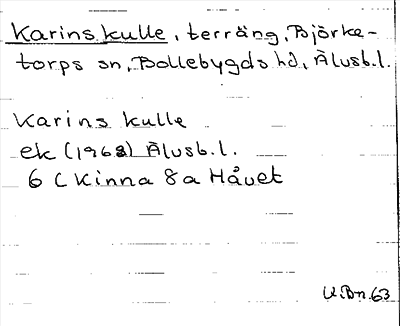 Karins kulle, terräng, Björke-
torps sn, Bollebygds hd, Älvsb.l.
Karins kulle
ek (1968) Älvsb.l.
6 C Kinna 8a Håvet
K.Bn.63